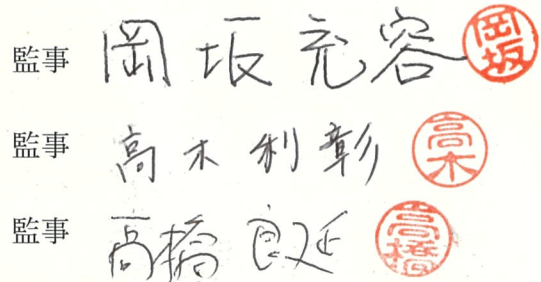 監事 岡坂充容 岡坂
監事 高木利彰 高木
監事 高橋良延 高橋